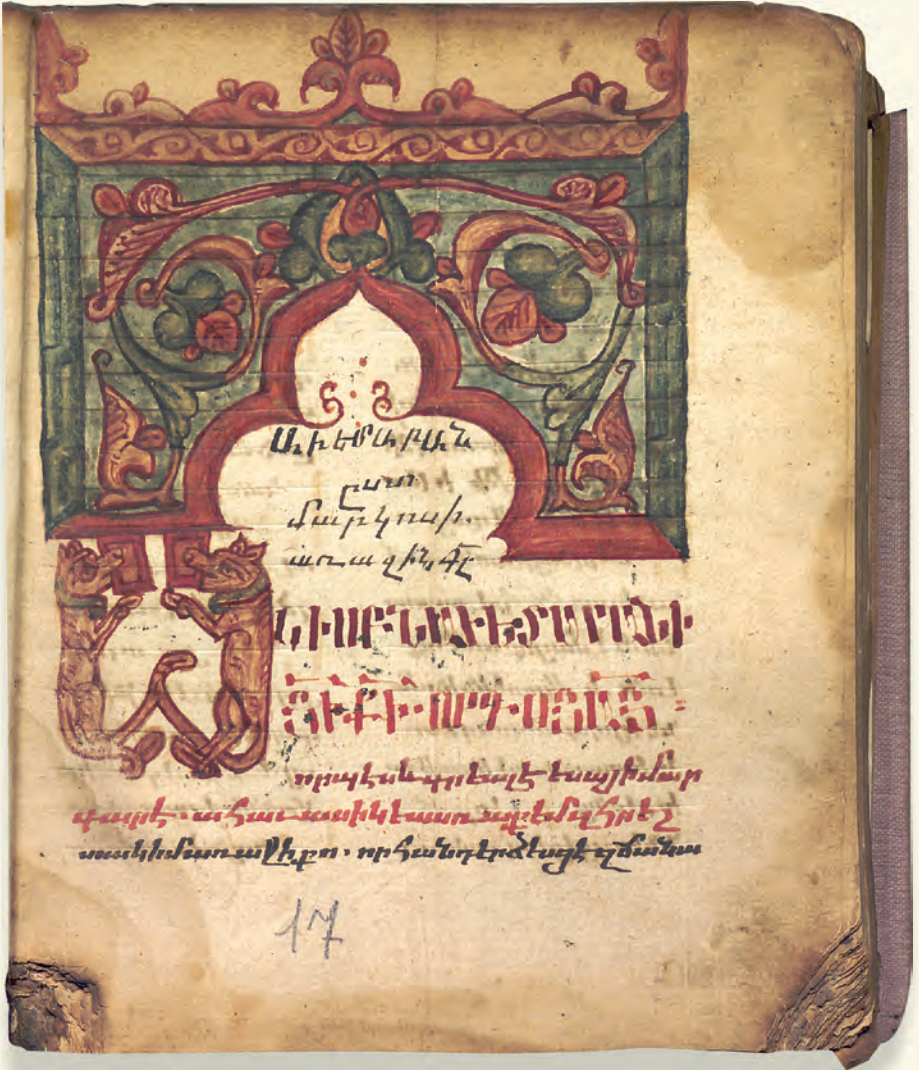 ԱՒԵՏԱՐԱՆ
ըստ
մարկոսի.
առաջին գլ
ՍԿԻԶԲՆ ԱՒԵՏԱՐԱՆԻ
ՅԻ ՔԻ·
որպէս և գրեալ է եսայի մար
գարէ · ահաւասիկ ես առաքեմ զհրեշ
տակ իմ առաջի քո · որ հանդերձեսցէ զճանա
17